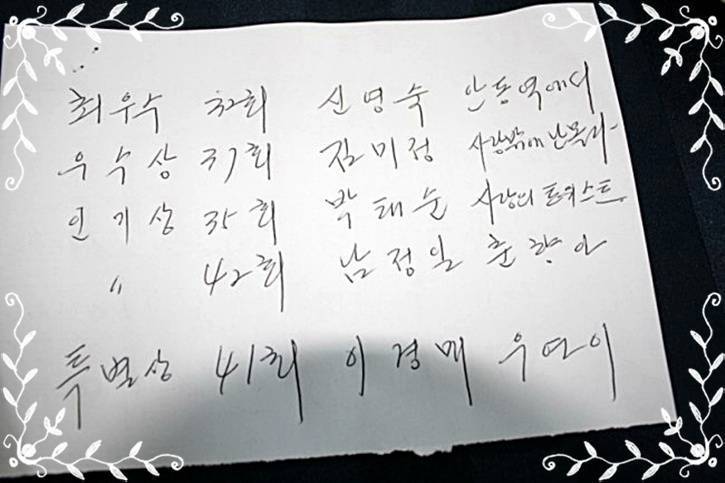 최우수 32회 신영숙 안동역에서
우수상 37회 김미정 사랑밖에 난 몰라
인기상 35회 박태순 사랑의 트위스트
〃 42회 남정일 춘향아
특별상 41회 이경매 우연이